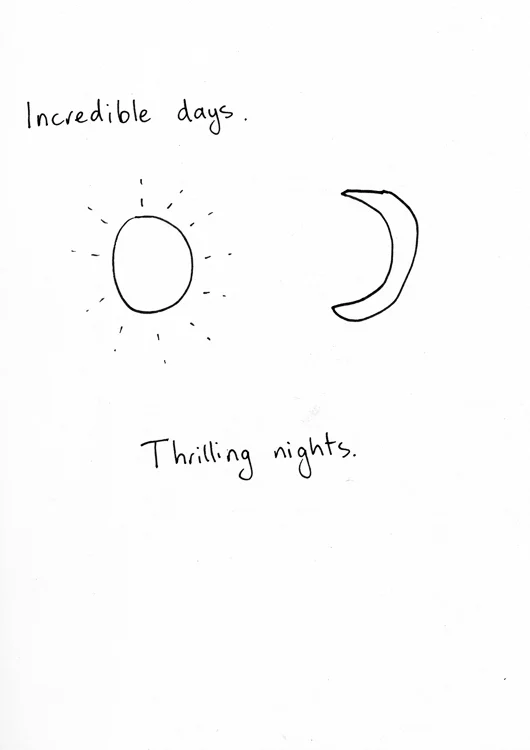 Incredible days.
Thrilling nights.